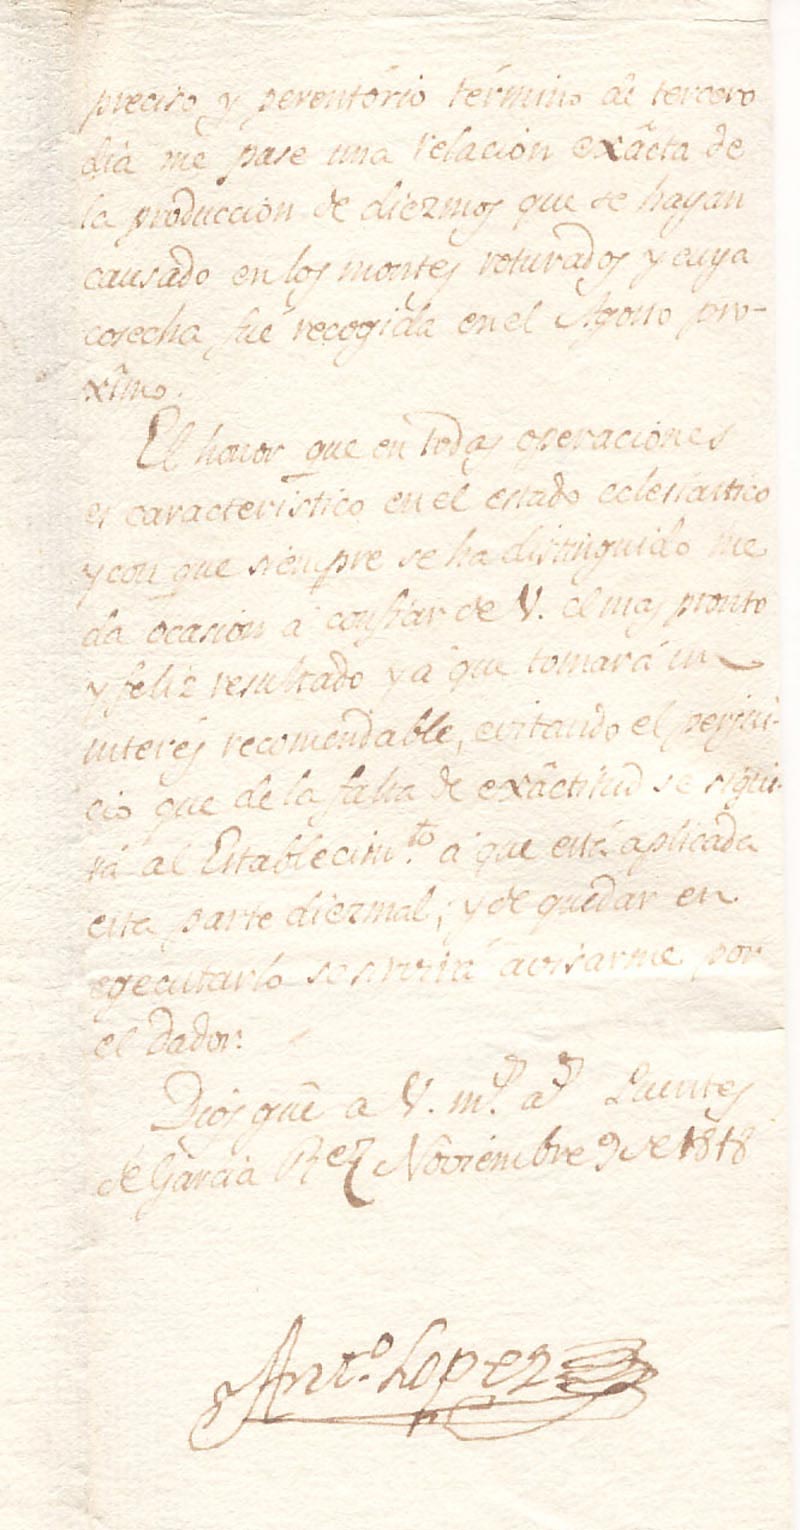 preciso y perentório término al tercero
dia me pase una relacion exâcta de
la produccion de diezmos que se hayan
causado en los montes roturados y cuya
cosecha fué recogida en el Agosto pro-
xîmo.
El honor que en todas operaciones
es característico en el estado eclesiastico
y con que siempre se ha distinguido me
da ocasion á confiar de V. el mas pronto
y feliz resultado y á que tomará un
interés recomendable, evitando el perjui-
cio que de la falta de exâctitud se segui-
rá al Establecim.to á que está aplicada
esta parte diezmal; y de quedar en
egecutarlo se servirá avisarme por
el dador.
Dios gûe a V. m.s a.s Puentes
de Garcia Rez Noviembre 9 de 1818
Ant.o Lopez